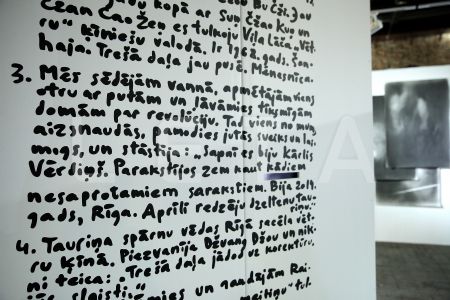 kopā ar Sun
Čžan Čao Žen es tulkoju Viļa Lāča „Vēt-
ru" ķīniešu valodā. Ir 1962. gads. Šan-
haja. Trešā daļa jau pusē. Mēnesnīca.
3. Mēs sēdējām vannā, apmētājām viens
otru ar putām un ļāvāmies tīksmīgām
domām par revolūciju. Tad viens no mums
aizsnaudās, pamodies jutās svaiks un lai-
mīgs, un stāstīja: „Sapnī es biju Kārlis
Vērdiņš. Parakstījos zem kaut kādiem
nesaprotamiem sarakstiem. Bija 2014.
gads, Rīga. Aprīlī redzēju dzeltenu Tau-
riņu."
4. Tauriņa spārnu vēdas Rīgā sacēla vēt-
ru Ķīnā. Piezvanīja Džvang Džou un nik-
ni teica: „Trešā daļa jādod uz korektūru,
un gaudējām Rai-